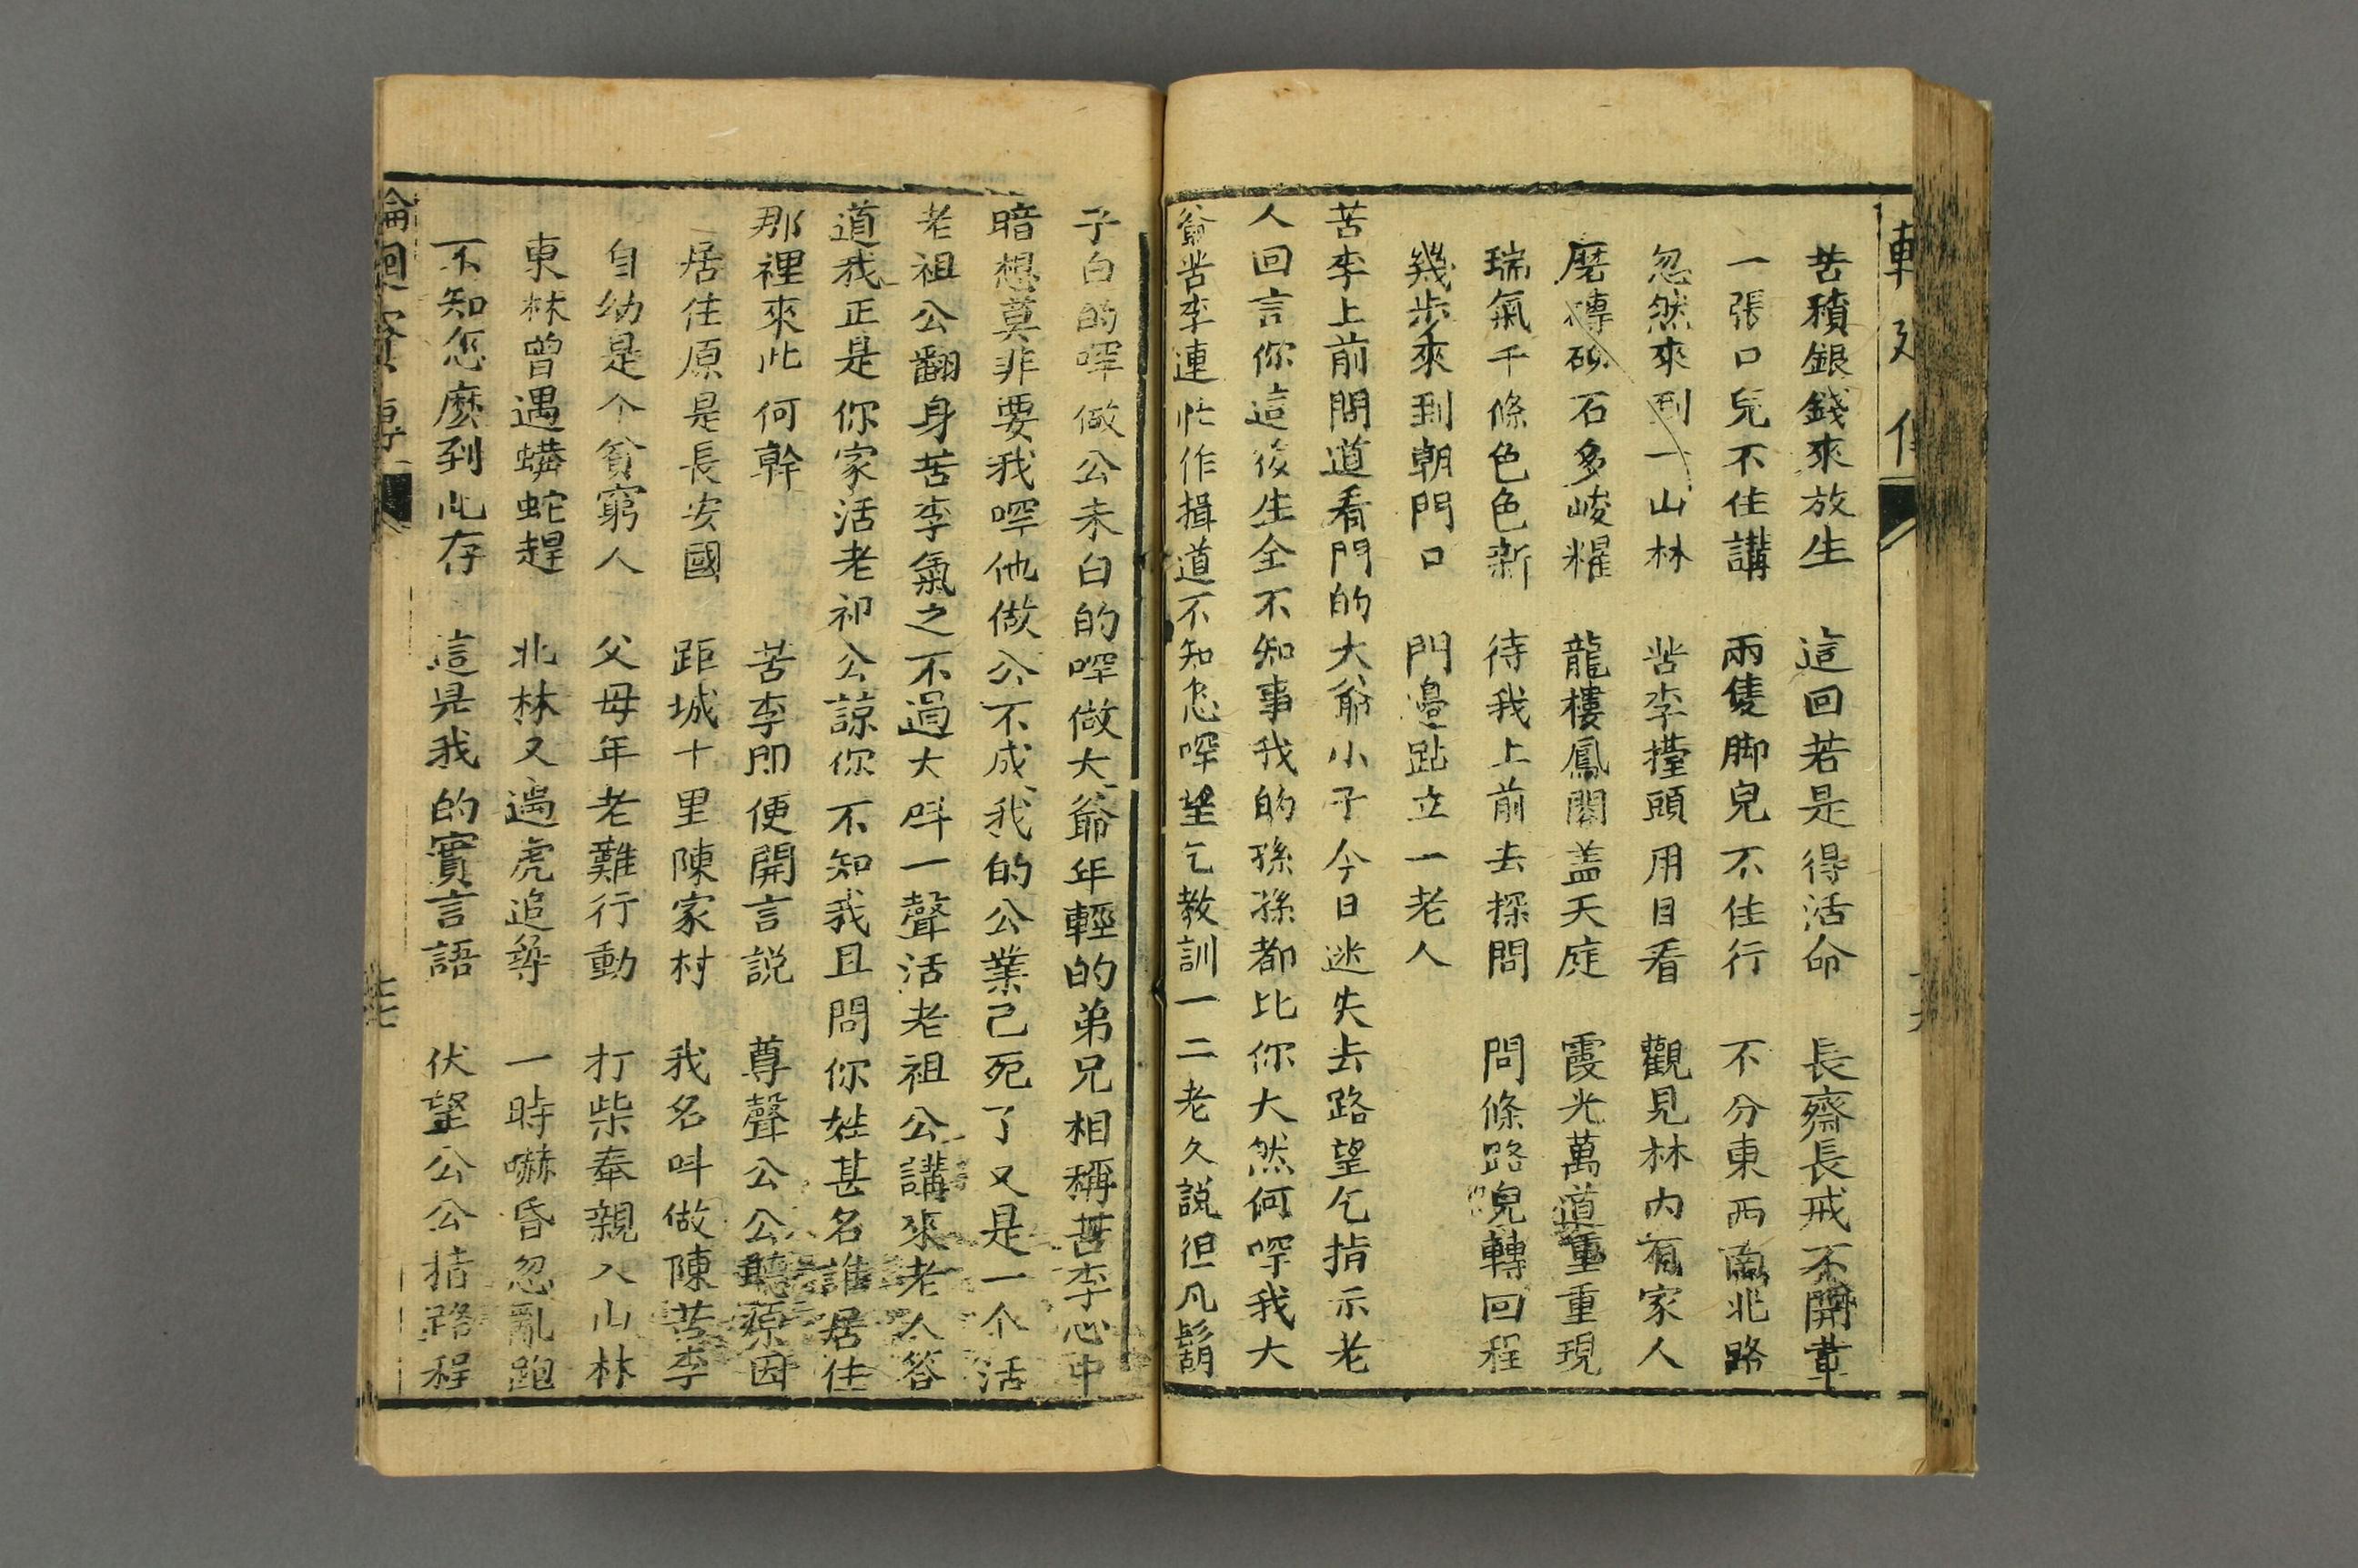 苦積銀錢來放生　這回若是得活命　長齋長戒不開葷
一張口兒不住講　兩隻脚兒不住行　不分東西南北路
忽然來到一山林　苦李擡頭用目看　觀見林內有家人
磨磚砂石多峻糶　龍樓鳳閣盖天庭　霞光萬道重重現
瑞氣千條色色新　待我上前去探問　問條路兒轉回程
幾步來到朝門口　門邉跕立一老人
苦李上前問道看門的大爺小子今日迷失去路望乞指示老
人回言你這後生全不知事我的孫孫都比你大然何㖸我大
爺苦李連忙作揖道不知怎㖸望乞教訓一二老久説但凡鬍
子白的㖸做公未白的㖸做大爺年輕的弟兄相稱苦李心中
暗想莫非要我㖸他做公不成我的公業己死了又是一个活
老祖公翻身苦李氣之不過大呌一聲活老祖公講來老人答
道我正是你家活老祁公諒你不知我且問你姓甚名誰居住
那裡來此何幹　苦李即便開言説　尊聲公公聽原因
居住原是長安國　距城十里陳家村　我名呌做陳苦李
自幼是个貧窮人　父母年老難行動　打柴奉親入山林
東林曾遇蟒蛇趕　北林又遇虎追尋　一時嚇昏忽亂跑
不知怎麽到此存　這是我的實言語　伏望公公指路程